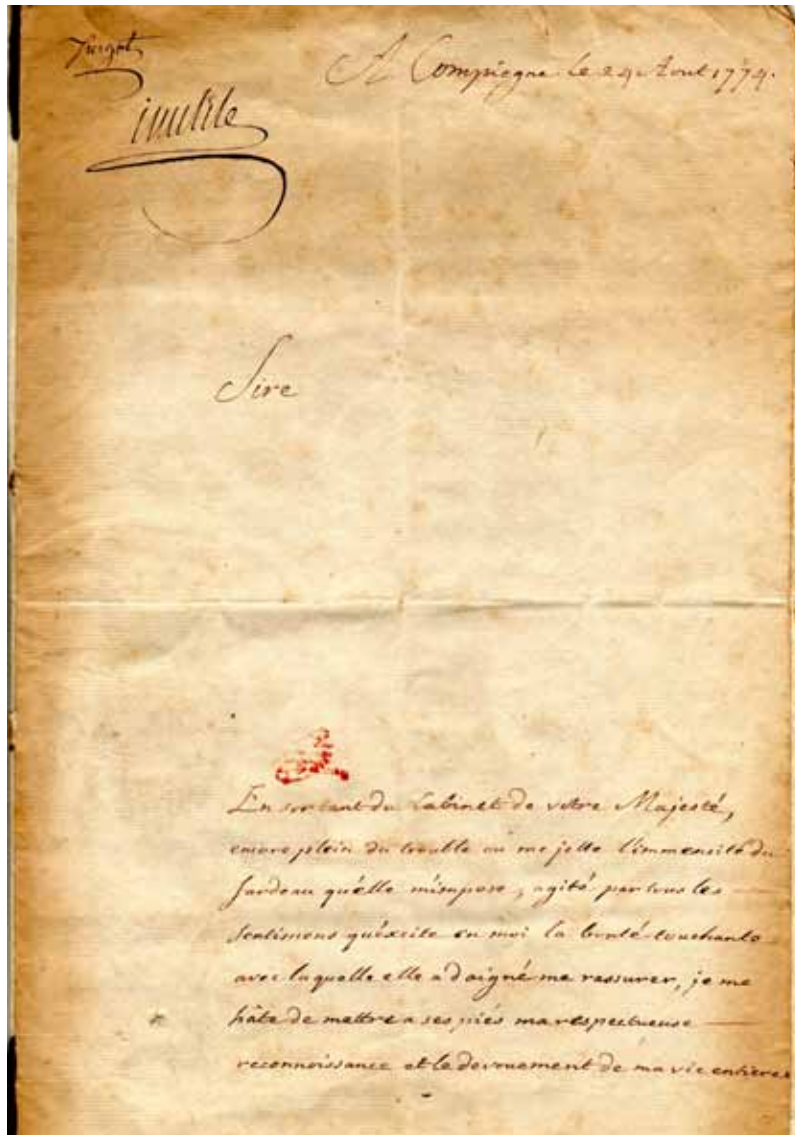 Turgot
inutile
A Compiegne le 24 Aout 1774.
Sire
En sortant du Cabinet de votre Majesté,
encore plein du trouble ou me jette l'immensité du
fardeau qu'elle m'impose, agité par tous les
sentimens qu'éxcite en moi la bonté touchante
avec laquelle elle a daigné me rassurer, je me
hâte de mettre a ses piés ma respectueuse
reconnoissance et le devouement de ma vie entiere